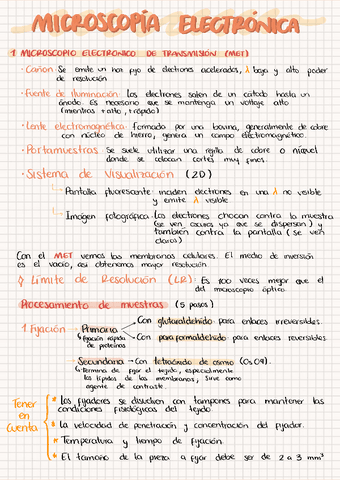 MICROSCOPÍA ELECTRÓNICA
1 MICROSCOPIO ELECTRONICO DE TRANSMISIÓN (MET)
· Cañon: Se emite un haz fijo de electrones acelerados, λ baja y alto poder
de resolución
· Fuente de Iluminación: Los electrones salen de un cátodo hasta un
ánodo. Es necesario que se mantenga un voltaje alto
(mientras +alto, +rápido)
· Lente electromagnética: Formado por una bovina, generalmente de cobre
con núcleo de hierro, genera un campo electromagnético.
· Portamuestras: Se suele utilizar una rejilla de cobre o níquel
donde se colocan cortes muy finos.
· Sistema de Visualización (2D)
Pantalla fluorescente: inciden electrones en una λ no visible
y emite λ visible
Imagen fotográfica: Los electrones chocan contra la muestra
(se ven oscuros ya que se dispersan) y
también contra la pantalla (se ven
claros)
Con el MET vemos las membranas celulares. El medio de inversión
es el vacío, así obtenemos mayor resolución.
Límite de Resolución (LR): Es 100 veces mejor que el
del microscopio óptico.
Procesamiento de muestras (5 pasos)
1 Fijación
Primaria
Con glutaraldehido para enlaces irreversibles.
↳ fijación rápida
de proteínas
Con paraformaldehido para enlaces reversibles
Secundaria → Con tetraóxido de osmio (OsO4).
↳ Termina de fijar el tejido, especialmente
los lípidos de las membranas, sirve como
agente de contraste.
Tener
en
cuenta
* Los fijadores se disuelven con tampones para mantener las
condiciones fisiológicas del tejido.
* La velocidad de penetración y concentración del fijador.
* Temperatura y tiempo de fijación
* El tamaño de la pieza a fijar debe ser de 2 a 3 mm³